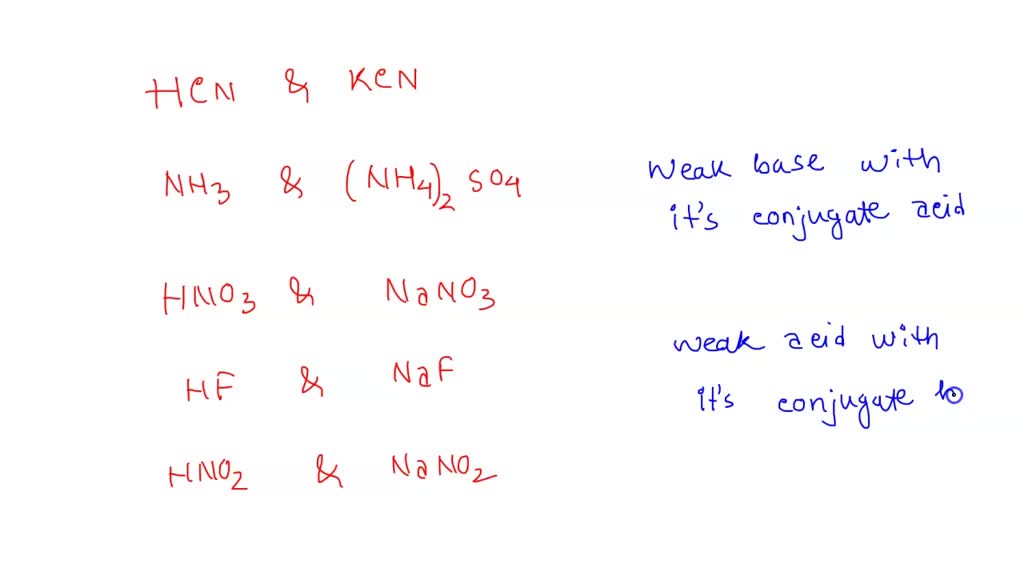 HCN & KCN
NH3 & (NH4)2 SO4
HNO3 & NaNO3
HF & NaF
HNO2 & NaNO2
weak base with
it's conjugate acid
weak acid with
it's conjugate